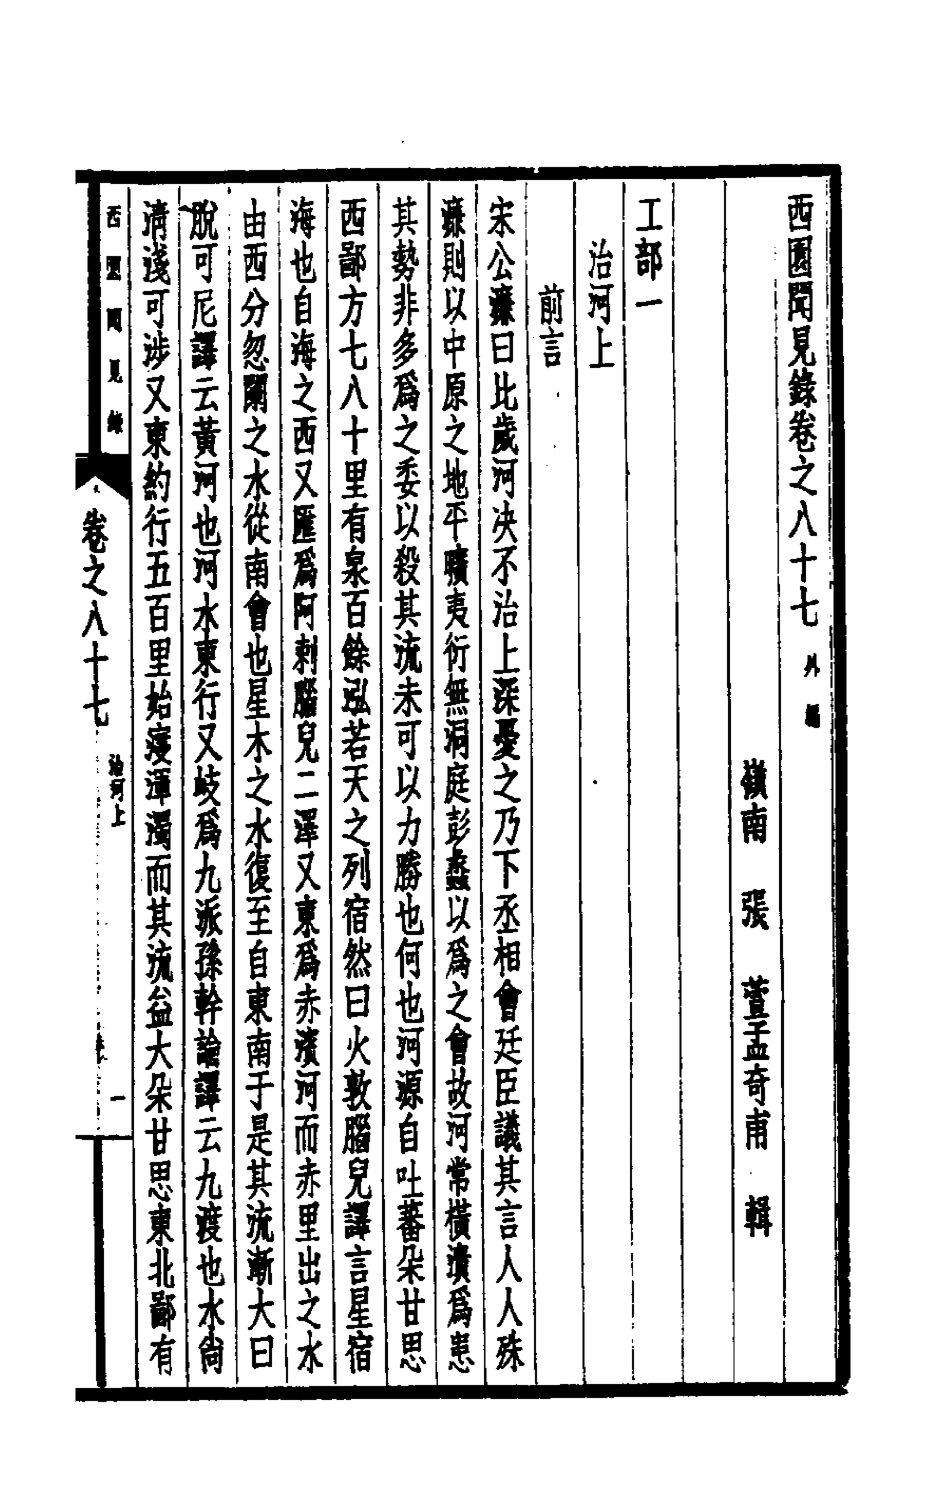 西園聞見錄卷之八十七 外編
嶺南 張 萱孟奇甫 輯
工部一
治河上
前言
宋公濂曰比歲河決不治上深憂之乃下丞相會廷臣議其言人人殊
濂則以中原之地平曠夷衍無洞庭彭蠡以爲之會故河常橫潰爲患
其勢非多爲之委以殺其流未可以力勝也何也河源自吐蕃朵甘思
西鄙方七八十里有泉百餘泓若天之列宿然曰火敦腦兒譯言星宿
海也自海之西又匯爲阿剌腦兒二澤又東爲赤濱河而赤里出之水
由西分忽闌之水從南會也星木之水復至自東南于是其流漸大曰
脫可尼譯云黃河也河水東行又岐爲九派孫幹論譯云九渡也水尙
淸淺可涉又東約行五百里始寖渾濁而其流益大朵甘思東北鄙有
西園聞見錄
卷之八十七
治河上
一